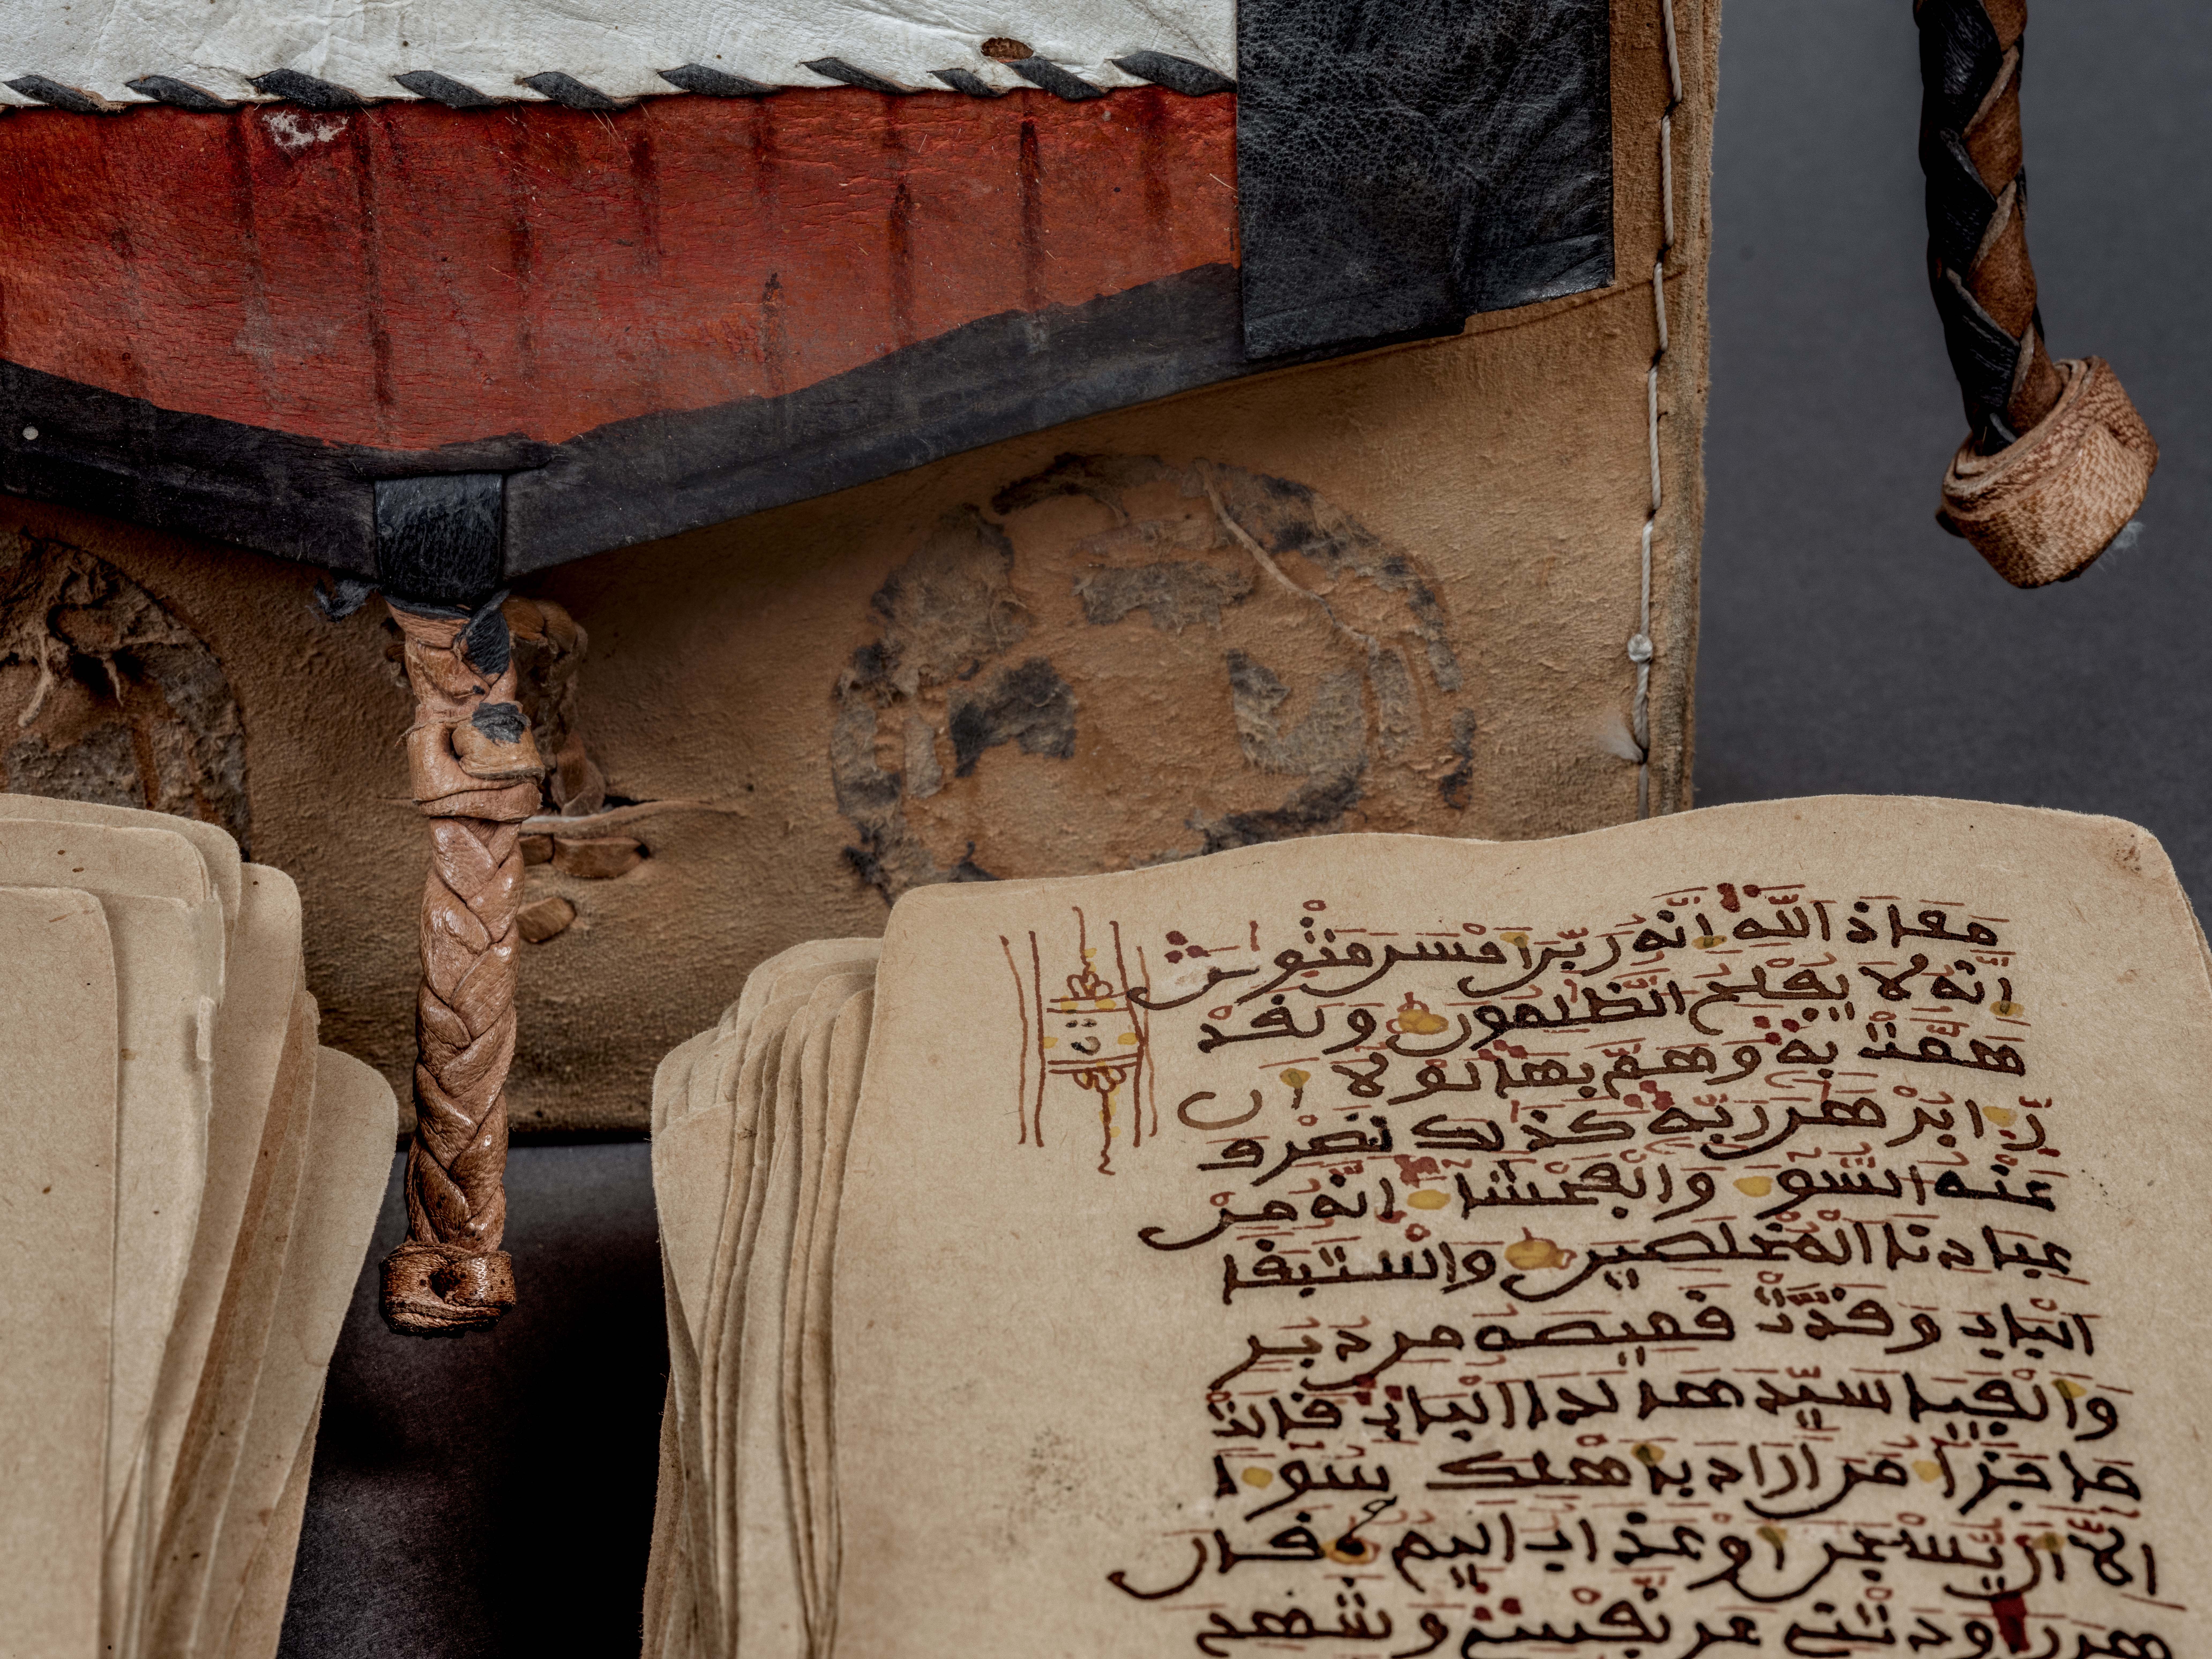 مَعَاذَ اللَّهِ إِنَّهُ رَبِّي أَحْسَنَ مَثْوَايَ
إِنَّهُ لَا يُفْلِحُ الظَّلِمُونَ وَلَقَدْ
هَمَّتْ بِهِ وَهَمَّ بِهَا لَوْلَا أَن
رَّءَا بُرْهَنَ رَبِّهِ كَذَلِكَ لِنَصْرِفَ
عَنْهُ السُّوءَ وَالْفَحْشَاءَ إِنَّهُ مِنْ
عِبَادِنَا الْمُخْلَصِينَ وَاسْتَبَقَا
الْبَابَ وَقَدَّتْ قَمِيصَهُ مِن دُبُرٍ
وَأَلْفَيَا سَيِّدَهَا لَدَا الْبَابِ قَالَتْ
مَا جَزَاءُ مَنْ أَرَادَ بِأَهْلِكَ سُوءًا
إِلَّا أَن يُسْجَنَ أَوْ عَذَابٌ أَلِيمٌ قَالَ
هِيَ رَوَدَتْنِي عَن نَّفْسِي وَشَهِدَ